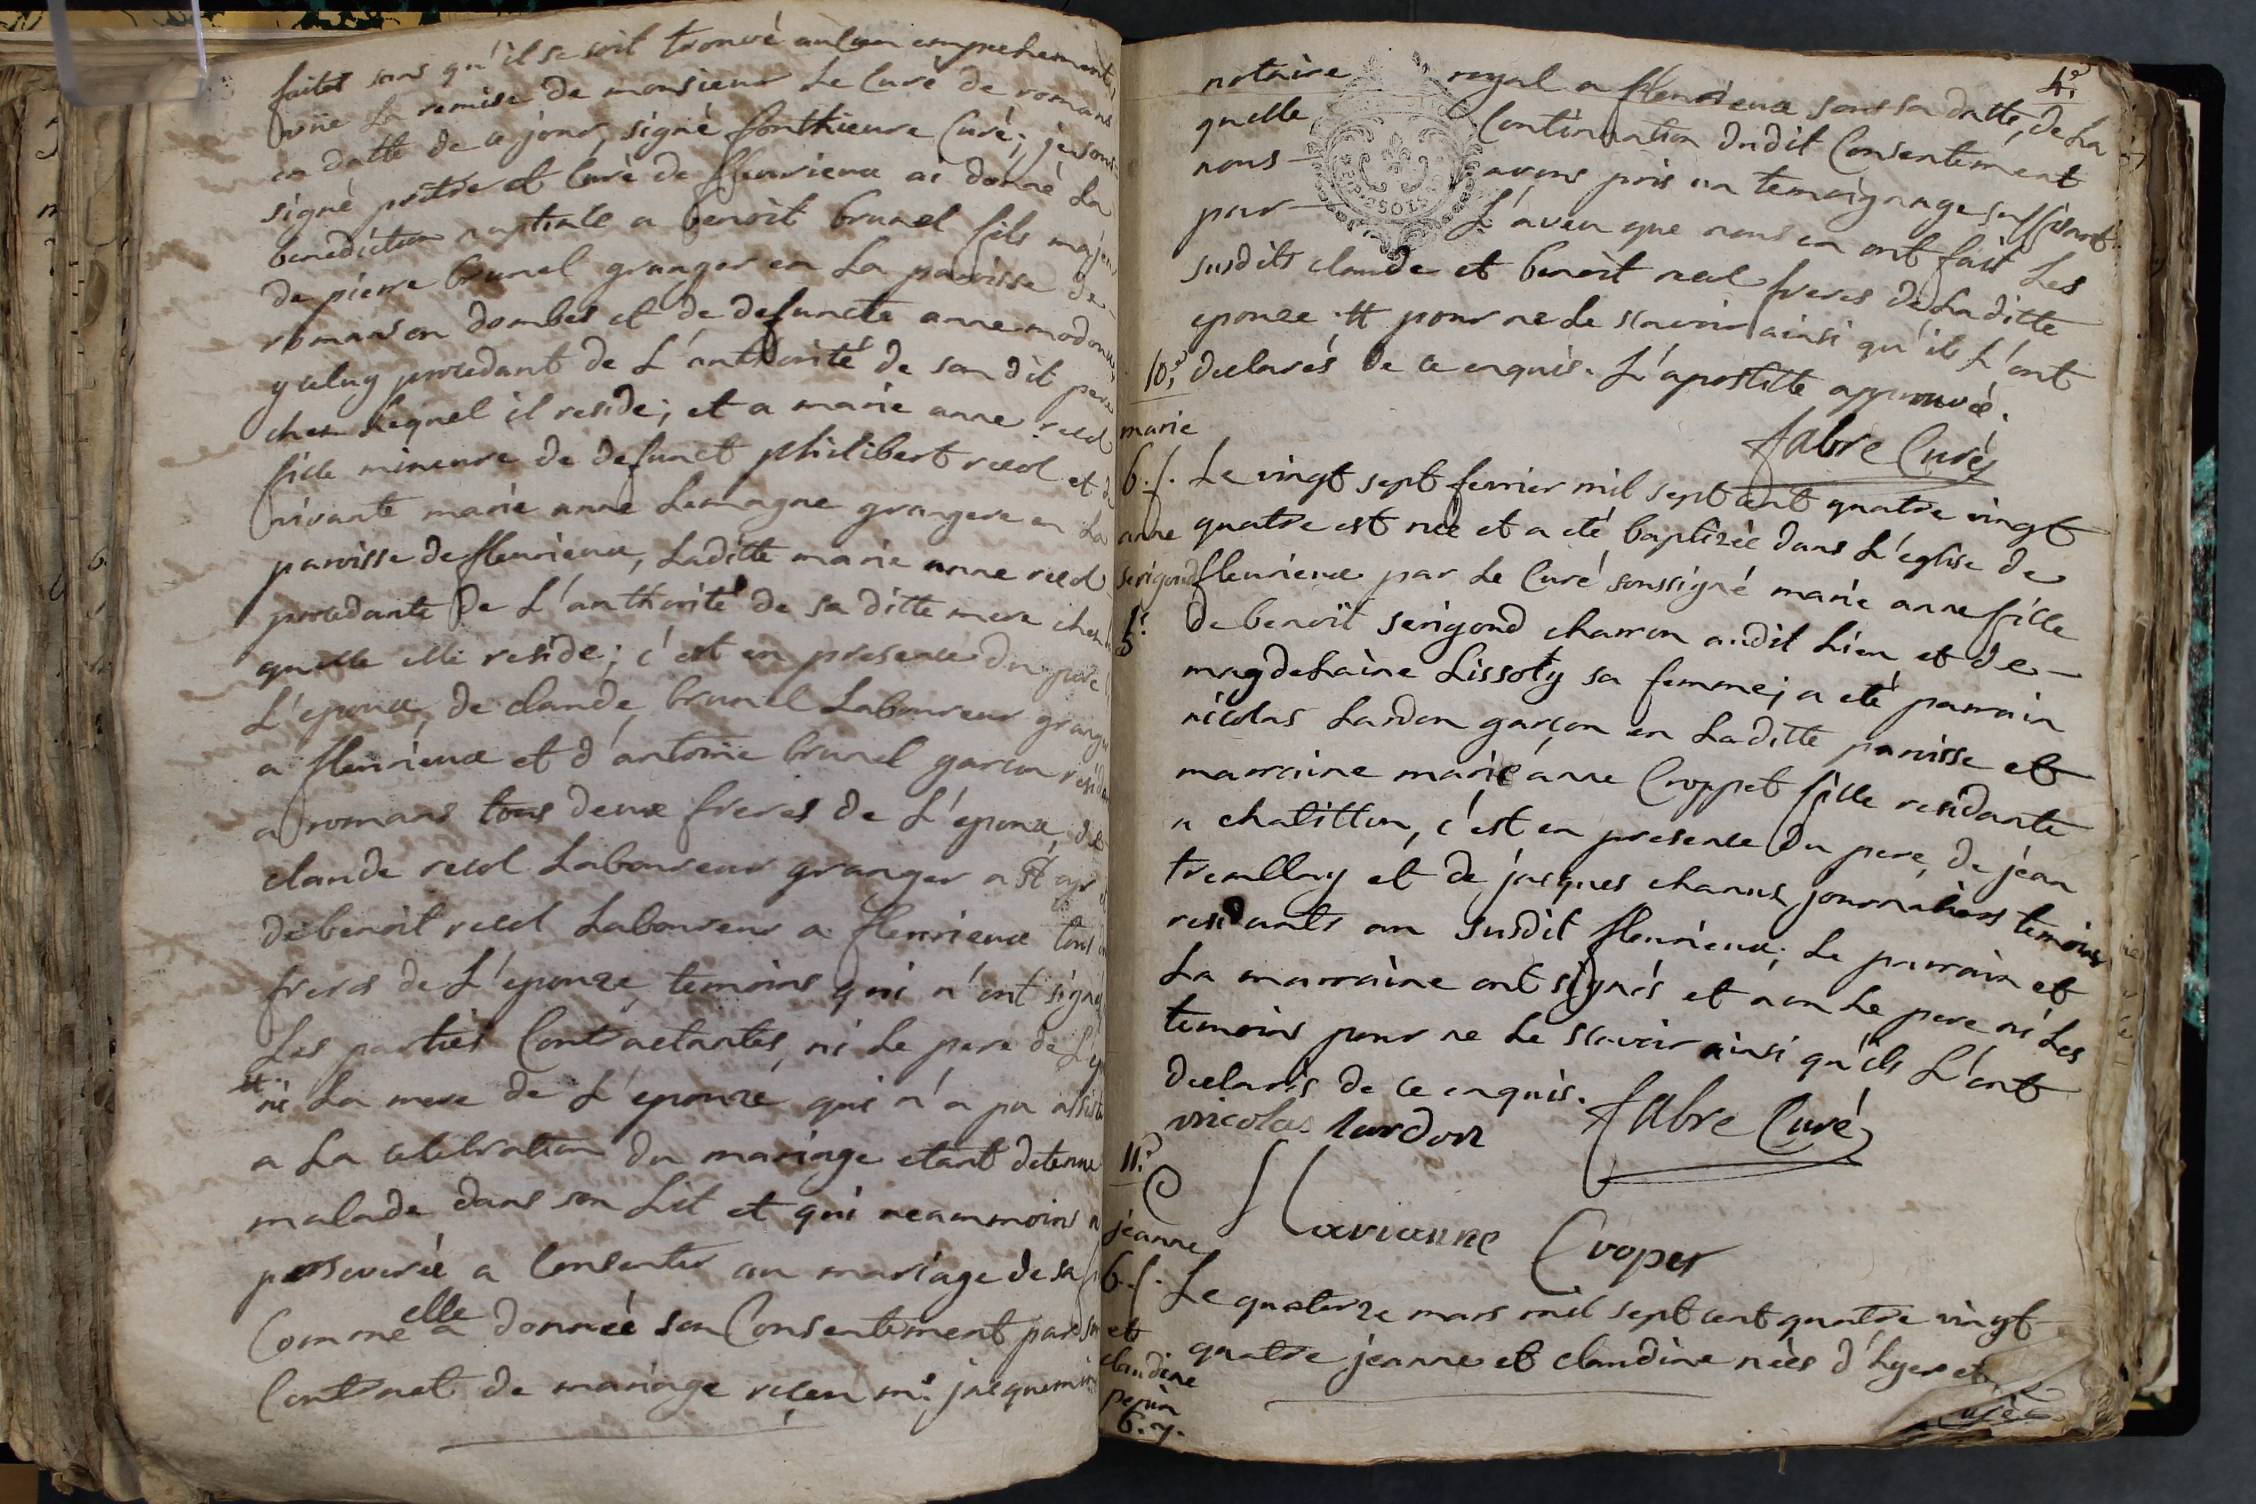 faites sans qu'il se soit trouvé aulcun empechement
vüe la remise de monsieur le Curé de romans
en datte de ce jour, signé fonthieure Curé; je sous
signé prêtre et Curé de fleurieux ai donné la
benediction nuptiale a benoit brunel fils majeur
de pierre brunel granger en la paroisse de
romans en dombes et de defuncte anne
y celuy procedant de L'authorité de son dit pere
chez lequel il reside; et a marie anne reed
fille mineure de defunct philibert reed et de
vivante marie anne Lemagne grangere en La
paroisse de fleurieux, Laditte marie anne reed
procedante de L'authorité de sa ditte mere chez
quelle elle reside; c'est en presence du pere
L'epoux, de claude brunel Laboureur grange
a fleurieux et d'antoine brunel garçon resida
a romans tous deux freres de L'epoux, de
claude reed Laboureur granger a St cyr
de benoit reed Laboureur a fleurieux tous
freres de L'epouze, temoins qui n'ont signé
Les parties Contractantes, ni Le pere de L'ep
# ni La mere de L'epouze qui n'a pu assiste
a La celebration du mariage etant detenue
malade dans son Lit et qui neammoins a
perseverée a Consenter au mariage de sa fi
Comme elle a donnée son Consentement par son
Contract de mariage reçeu me. jacquemin
4e.
notaire royal a fleurieux sous sa datte, de La
quelle Continuation dudit Consentement
nous avons pris un temoignage suffisant
par L'aveu que nous en ont fait Les
susdits claude et benoit reed freres de Laditte
epouze # pour ne Le scavoir ainsi qu'ils L'ont
declarés de ce enquis. L'apostille approuvée.
fabre Curé
10e.
marie
b.f.
anne
serigond
5e.
Le vingt sept fevrier mil sept cent quatre vingt
quatre est née et a eté baptizée dans L'eglise de
fleurieux par Le Curé soussigné marie anne fille
de benoït serigond charron audit Lieu et de
magdeLaine Lissoty sa femme; a eté parrain
nicolas Lardon garçon en Laditte paroisse et
marraine marie anne Croppet fille residante
a chatillon, c'est en presence du pere, de jean
tremblay et de jacques chanus journaliers temoins
residants au susdit fleurieux; Le parrain et
La marraine ont signés et non Le pere ni Les
temoins pour ne Le scavoir ainsi qu'ils L'ont
declarés de ce enquis.
nicolas lardon
fabre Curé
Marianne Croper
11e.
jeanne
b.f.
et
claudine
perrin
6.7.
Le quatorze mars mil sept cent quatre vingt
quatre jeanne et claudine nées d'hyer et